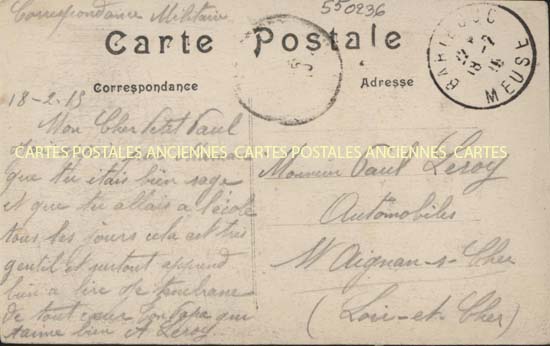 Correspondance Militaire
550236
Carte Postale
Correspondance
Adresse
BAR LE DUC
18 -2 15
MEUSE
18-2.15
Mon Cher Petit Paul
CARTES POSTALES ANCIENNES CARTES POSTALES ANCIENNES CARTES
que tu étais bien sage
et que tu allais a l'école
tous les jours cela est très
gentil et surtout apprend
bien a lire
de tout cœur ton Papa qui
t'aime bien A Leroy
Monsieur Paul Leroy
Automobiles
St Aignan-s-Cher
(Loir-et-Cher)